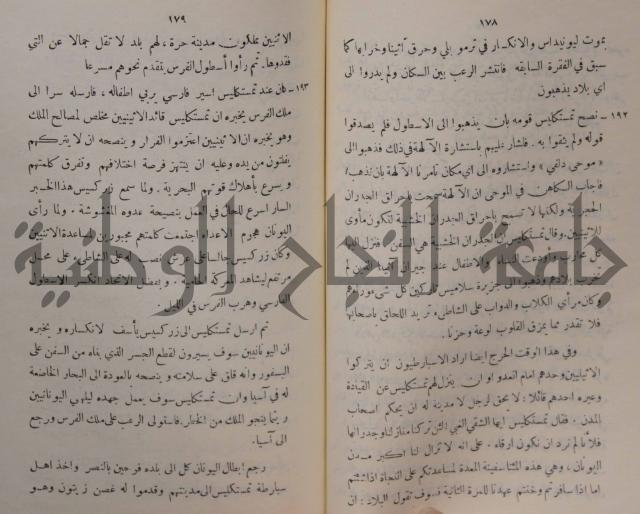 ١٧٨
بموت ليونيداس والانكسار في ترمو بلي وحرق آتينا وخرابها كما
سبق في الفقرة السابقه فانتشر الرعب بين السكان ولم يدروا الى
اي بلاد يذهبون
١٩٢ـ نصح تمستكليس قومه بان يذهبوا الى الاسطول فلم يصدقوا
قوله ولم يثقوا به . فاشار عليهم باستشارة الآلهة في ذلك فذهبوا الى
« موحى دلفي » واستشاروه الى اي مكان تأمرنا الآلهة بان نذهب؟
فاجاب الكاهن في الموحى ان الآلهة سمحت باحراق الجدران
الحجرية ولكنها لا تسمح باحراق الجدران الخشبية لتكون مأوى
للاثينيين. وقال تمستكليس ان الجدران الخشبية هي السفن . فنزل اليها
كل محارب وأودعت النساء والاطفال عند جيران
بلادهم وذهبوا الى جزيرة سلاميس تاركين كل شيء
وكان مرأى الكلاب والدواب على الشاطىء تريد اللحاق باصحابها
فلا تقدر مما يمزق القلوب لوعة وحزنا .
وفي هذا الوقت الحرج ايضا اراد الاسبارطيون ان يتركوا
الاثينيين وحدهم امام العدو او ان ينزل لهم تمستكليس عن القيادة
وعيره احدهم قائلا : لا يحق لرجل لا مدينة له ان يحكم اصحاب
المدن . فقال تمستكليس ايها الشقي الغبي اذن تركنا منازلنا وجدرانها
فلاننا لم نرد ان نكون ارقاء . على انه لا تزال لنا اكبر مدن
اليونان ، وهي هذه المئتا سفينة المعدة لمساعدتكم على النجاة اذا شئتم
اما اذا سافرتم وخنتم عهدنا للمرة الثانية فسوف تقول البلاد : ان
١٧٩
الاثنيين يملكون مدينة حرة ، لهم بلد لا تقل جمالا عن التي
فقدوها . ثم رأوا أسطول الفرس يتقدم نحوهم مسرعا
١٩٣ـ كان عند تمستكليس اسير فارسي يربي اطفاله ، فارسله سرا الى
ملك الفرس يخبره ان تمستكليس قائد الاثينيين مخلص لمصالح الملك
وهو يخبره ان الاثينيين اعتزموا الفرار وينصحه ان لا يتركهم
يفلتون من يده وعليه ان ينتهز فرصة اختلافهم وتفرق كلمتهم
ويسرع بأهلاك قوتهم البحرية . ولما سمع زركسيس هذا الخبر
السار اسرع للحال في العمل بنصيحة عدوه المغشوشة . ولما رأى
اليونان هجوم الاعداء اجتمعت كلمتهم مجبورين لمساعدة الاثنيين
وكان زركسيس جالسا على عرش نصب له على الشاطىء على محل
مرتفع ليشاهد المعركة وبفضل الاتحاد انكسر الاسطول
الفارسي وهرب الفرس في الليل .
ثم ارسل تمستكليس الى زركسيس يأسف لانكساره ويخبره
ان اليونانيين سوف يسيرون لقطع الجسر الذي بناه من السفن على
البسفور وانه قلق على سلامته وينصحه بالعودة الى البحار الخاضعة
له في آسيا وان تمستكليس سوف يعمل جهده ليلهي اليونانيين
ريثما ينجو الملك من الخطر . فاستولى الرعب على ملك الفرس ورجع
الى آسيا .
رجع ابطال اليونان كل الى بلده فرحين بالنصر واخذ اهل
سبارطة تمستكليس الى مدينتهم وقدموا له غصن زيتون وهو
جامعة النجاح الوطنية